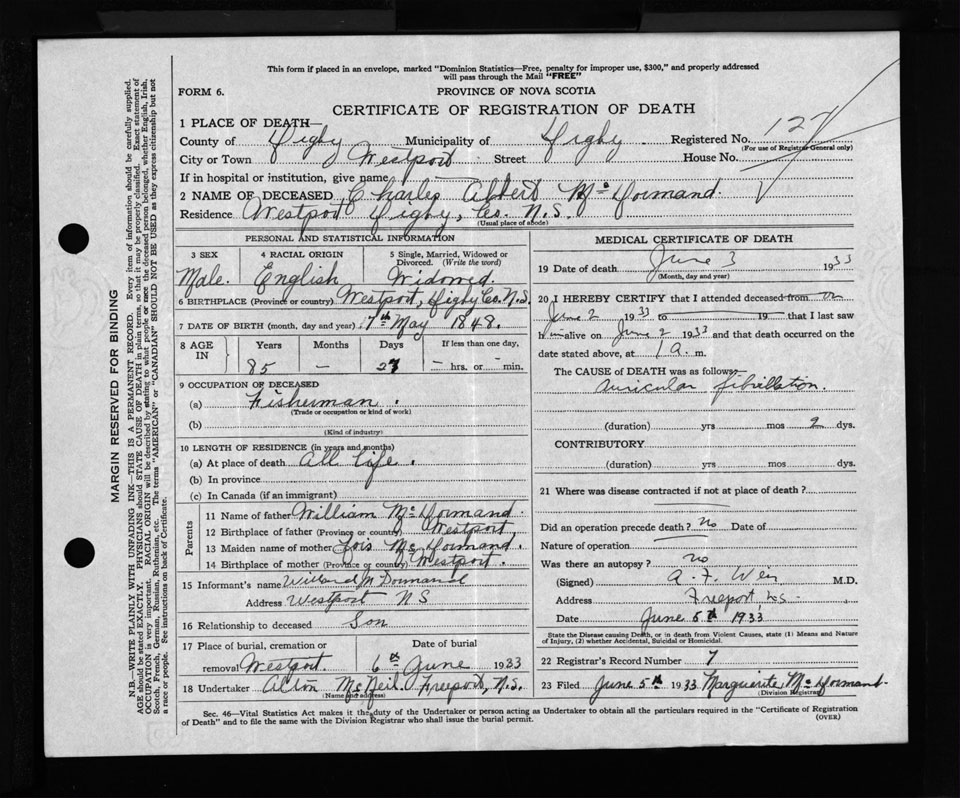 This form if placed in an envelope, marked "Dominion Statistics—Free, penalty for improper use, $300," and properly addressed
will pass through the Mail "FREE"
FORM 6.
PROVINCE OF NOVA SCOTIA
CERTIFICATE OF REGISTRATION OF DEATH
1 PLACE OF DEATH—
County of Digby Municipality of Digby Registered No. 127
(For use of Registrar General only)
City or Town Westport Street House No.
If in hospital or institution, give name
2 NAME OF DECEASED Charles Albert Mc Dormand
Residence Westport Digby, Co. N.S.
(Usual place of abode)
PERSONAL AND STATISTICAL INFORMATION
3 SEX 4 RACIAL ORIGIN 5 Single, Married, Widowed or
Divorced. (Write the word)
Male. English Widowed.
6 BIRTHPLACE (Province or country) Westport, Digby Co. N.S.
7 DATE OF BIRTH (month, day and year) 7th May 1848.
8 AGE IN Years Months Days If less than one day,
85 — 27 — hrs. or — min.
9 OCCUPATION OF DECEASED
(a) Fisherman.
(Trade or occupation or kind of work)
(b)
(Kind of industry)
10 LENGTH OF RESIDENCE (in years and months)
(a) At place of death All Life.
(b) In province
(c) In Canada (if an immigrant)
Parents
11 Name of father William Mc Dormand.
12 Birthplace of father (Province or country) Westport
13 Maiden name of mother Lois Mc Dormand.
14 Birthplace of mother (Province or country) Westport.
15 Informant's name Willard Mc Dormand
Address Westport NS
16 Relationship to deceased Son
17 Place of burial, cremation or Date of burial
removal Westport. 6th June 1933
18 Undertaker Alton McNeil Freeport, N.S.
(Name and address)
MEDICAL CERTIFICATE OF DEATH
19 Date of death June 3 1933
(Month, day and year)
20 I HEREBY CERTIFY that I attended deceased from on
June 2 1933 to 19 that I last saw
h im alive on June 2 1933 and that death occurred on the
date stated above, at 1 a. m.
The CAUSE OF DEATH was as follows:—
auricular fibrillation.
(duration) yrs mos 2 dys.
CONTRIBUTORY
(duration) yrs mos dys.
21 Where was disease contracted if not at place of death?
Did an operation precede death? no Date of
Nature of operation
Was there an autopsy? no
(Signed) A. F. Weir M.D.
Address Freeport, N.S.
Date June 5th 1933
State the Disease causing Death, or in death from Violent Causes, state (1) Means and Nature
of Injury, (2) whether Accidental, Suicidal or Homicidal.
22 Registrar's Record Number 7
23 Filed June 5th 1933 Marguerite Mc Dormand.
(Division Registrar)
Sec. 46—Vital Statistics Act makes it the duty of the Undertaker or person acting as Undertaker to obtain all the particulars required in the "Certificate of Registration
of Death" and to file the same with the Division Registrar who shall issue the burial permit.
(OVER)
MARGIN RESERVED FOR BINDING
N.B.—WRITE PLAINLY, WITH UNFADING INK—THIS IS A PERMANENT RECORD. Every item of information should be carefully supplied.
AGE should be stated EXACTLY. PHYSICIANS should STATE CAUSE OF DEATH in plain terms, so that it may be properly classified. Exact statement of
OCCUPATION is very important. RACIAL ORIGIN will be described by stating to what people or race the deceased person belonged, whether English, Irish,
Scotch, French, German, Russian, Ruthenian, etc. The terms "AMERICAN" or "CANADIAN" SHOULD NOT BE USED as they express citizenship but not
a race or people. See instructions on back of Certificate.